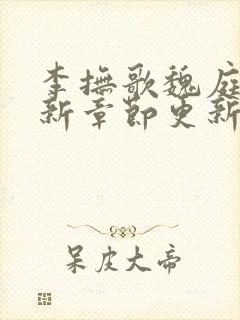 李撫歌魏庭
新章節更新
呆皮大帝